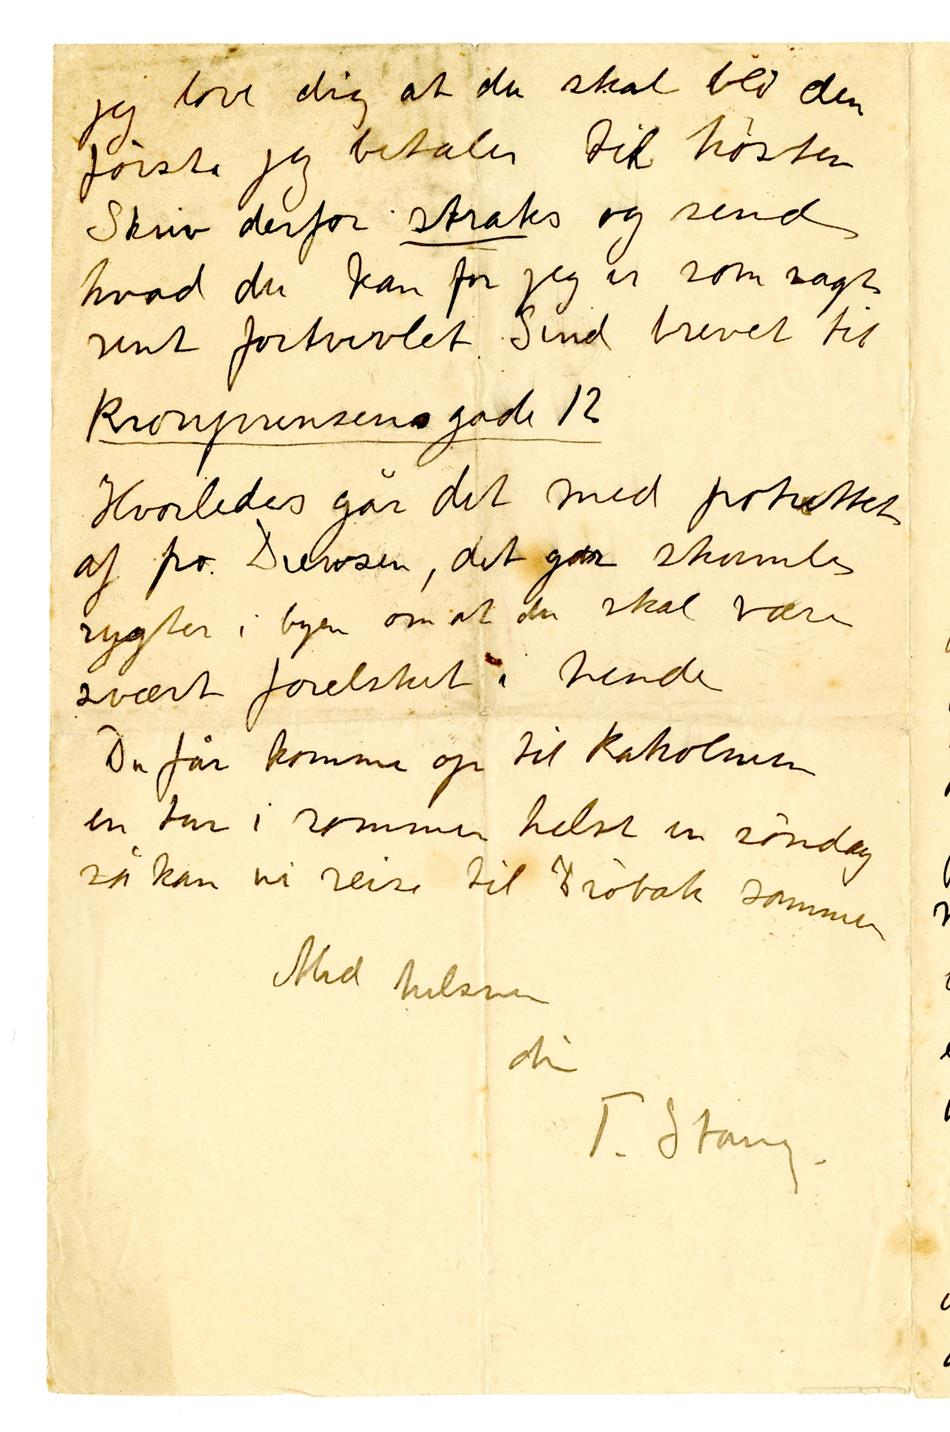 jeg love dig at du skal bli den
første jeg betaler til høsten
Skriv derfor straks og send
hvad du kan for jeg er som sagt
rent fortvivlet. Send brevet til
Kronprinsens gade 12
Hvorledes går det med potrettet
af fro. Drewsen, det går skumle
rygter i byen om at du skal være
svært forelsket i hende
Du får komme op til Kaholmen
en tur i sommer helst en søndag
så kan vi reise til Drøbak sammen
Med hilsnen
din
T. Stang.